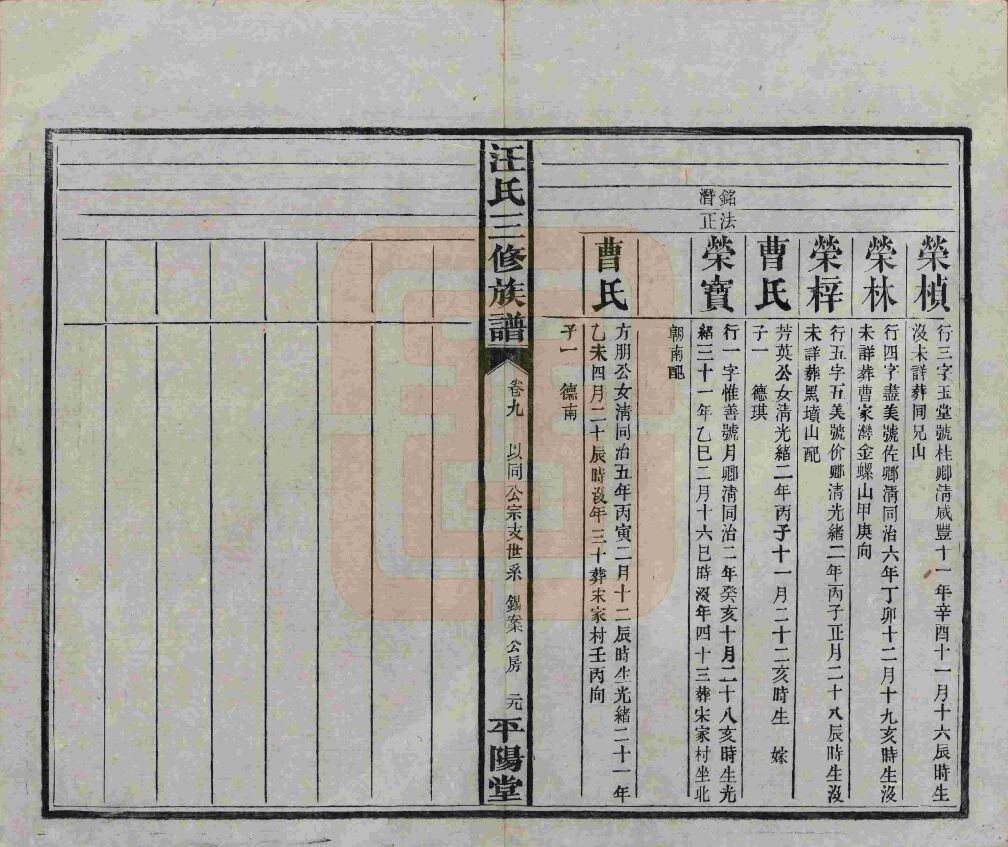 榮楨
行三字玉堂號桂卿清咸豐十一年辛酉十一月十六辰時生
沒未詳葬同兄山
榮林
行四字盡美號佐卿清同治六年丁卯十二月十九亥時生沒
未詳葬曹家灣金螺山甲庚向
榮梓
行五字五美號价卿清光緒二年丙子正月二十八辰時生沒
未詳葬黑墳山配
曹氏
芳英公女清光緒二年丙子十一月二十二亥時生 嫁
子一 德琪
銘法
潛正
榮寶
行一字惟善號月卿清同治二年癸亥十月二十八亥時生光
緒三十一年乙巳二月十六巳時沒年四十三葬宋家村坐北
朝南配
曹氏
方朋公女清同治五年丙寅二月十二辰時生光緒二十一年
乙未四月二十辰時沒年三十葬宋家村壬丙向
子一 德南
汪氏三修族譜
卷九 以同公宗支世系 錫案公房 元
平陽堂